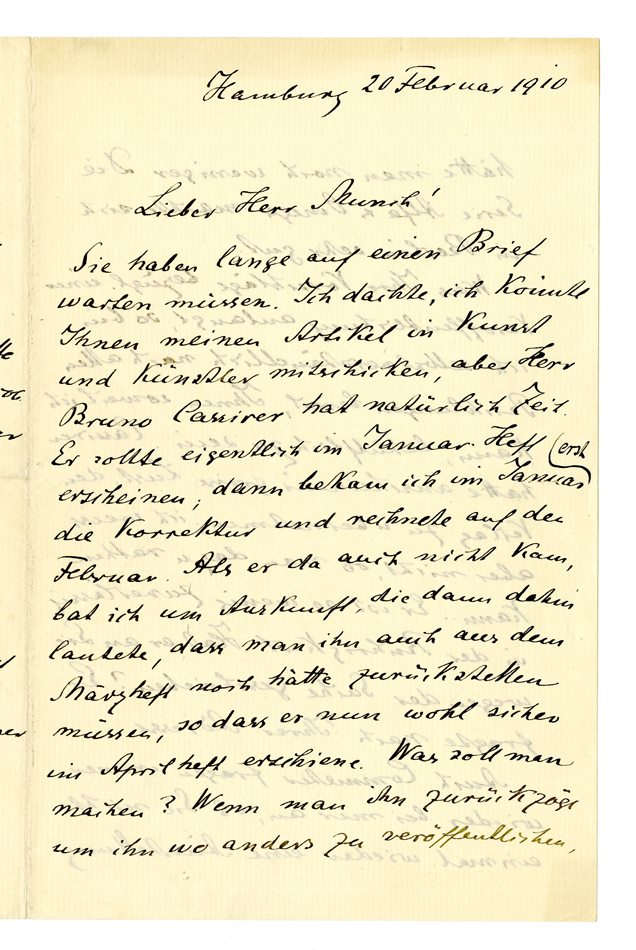 Hamburg 20 Februar 1910
Lieber Herr Munch!
Sie haben lange auf einen Brief
warten müssen. Ich dachte, ich könnte
Ihnen meinen Artikel in Kunst
und Künstler mitschicken, aber Herr
Bruno Cassirer hat natürlich Zeit.
Er sollte eigentlich im Januar Heft (erst
erscheinen; dann bekam ich im Januar
die Korrektur und rechnete auf den
Februar. Als er da auch nicht kam,
bat ich um Auskunft, die dann dahin
lautete, dass man ihn auch aus dem
Märzheft noch hätte zurückstellen
müssen, so dass er nun wohl sicher
im Aprilheft erschiene. Was soll man
machen? Wenn man ihn zurückzöge
um ihn wo anders zu veröffentlichen,